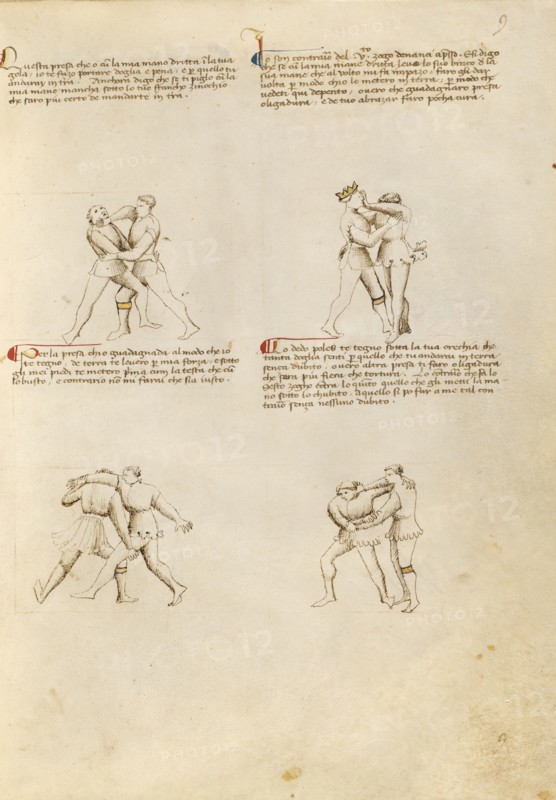 9
Questa presa che o cum la mia mano dritta in la tua
gola, io te fazo portare doglia e pena, e per quello tu
andarai in terra. Anchora digo che se ti piglo cum la
mia mano mancha sotto lo tuo stancho zinochio
che sarò più certo de mandarte in terra.
Io son contrario del V.to zogo denanci apresso. E si digo
che se cum la mia mane drita levo lo suo brazo de la
sua mane che al volto mi fa impazo, farogli dar
volta per modo ch'io lo metero in terra, per modo che
vedeti qui depento, overo che guadagnarò presa
o ligadura, e de tuo abrazar farò pocha cura.
Per la presa ch'io guadagnada, al modo che io
te tegno, de terra te leverò per mia forza, e sotto
gli mei piedi te metero prima cum la testa che cum
lo busto, e contrario non mi farai che sia iusto.
Lo dedo polese te tegno sotta la tua orechia che
tanta doglia senti per quello che tu andarai in terra
senza dubito, overo altra presa ti farò o ligadura
che sarà più fiera che tortura. Lo contrario che fa lo
sesto zogho contra lo quinto quello che gli metti la ma
no sotto lo chubito, aquello si pò far a me tal con
trario senza nessuno dubito.
PHOTO12